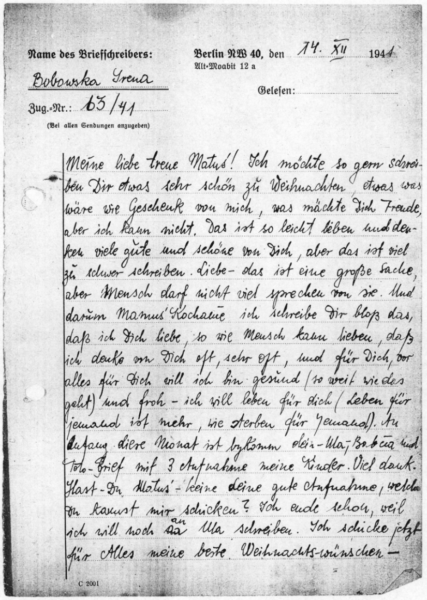 Name des Briefschreibers:
Bobowska Irena
Zug.-Nr.: 63/41
(Bei allen Sendungen anzugeben)
Berlin NW 40, den 14. XII 1941
Alt-Moabit 12 a
Gelesen:
Meine liebe treue Matuś! Ich möchte so gern schrei-
ben Dir etwas sehr schön zu Weihnachten, etwas was
wäre wie Geschenk von mich, was mächte Dich Freude,
aber ich kann nicht. Das ist so leicht lieben und den-
ken viele gute und schöne von Dich, aber das ist viel
zu schwer schreiben. Liebe - das ist eine große Sache,
aber Mensch darf nicht viel sprechen von sie. Und
darum Mamuś Kochana ich schreibe Dir bloß das,
daß ich Dich liebe, so wie Mensch kann lieben, daß
ich denke von Dich oft, sehr oft, und für Dich, vor
alles für Dich will ich bin gesund (so weit wie des
geht) und froh - ich will leben für dich (Leben für
jemand ist mehr, wie sterben für Jemand). An
Anfang diese Monat ist bekommen dein - Ula,- Babcia und
Tolo-Brief mit 3 Aufnahme meine Kinder. Viel dank.
Hast-Du Matuś - keine deine gute Aufnahme, welche
Du kannst mir schicken? Ich ende schon, weil
ich will noch an Ula schreiben. Ich schicke jetzt
für Alles meine beste Weihnachts-wünschen -
C 2001